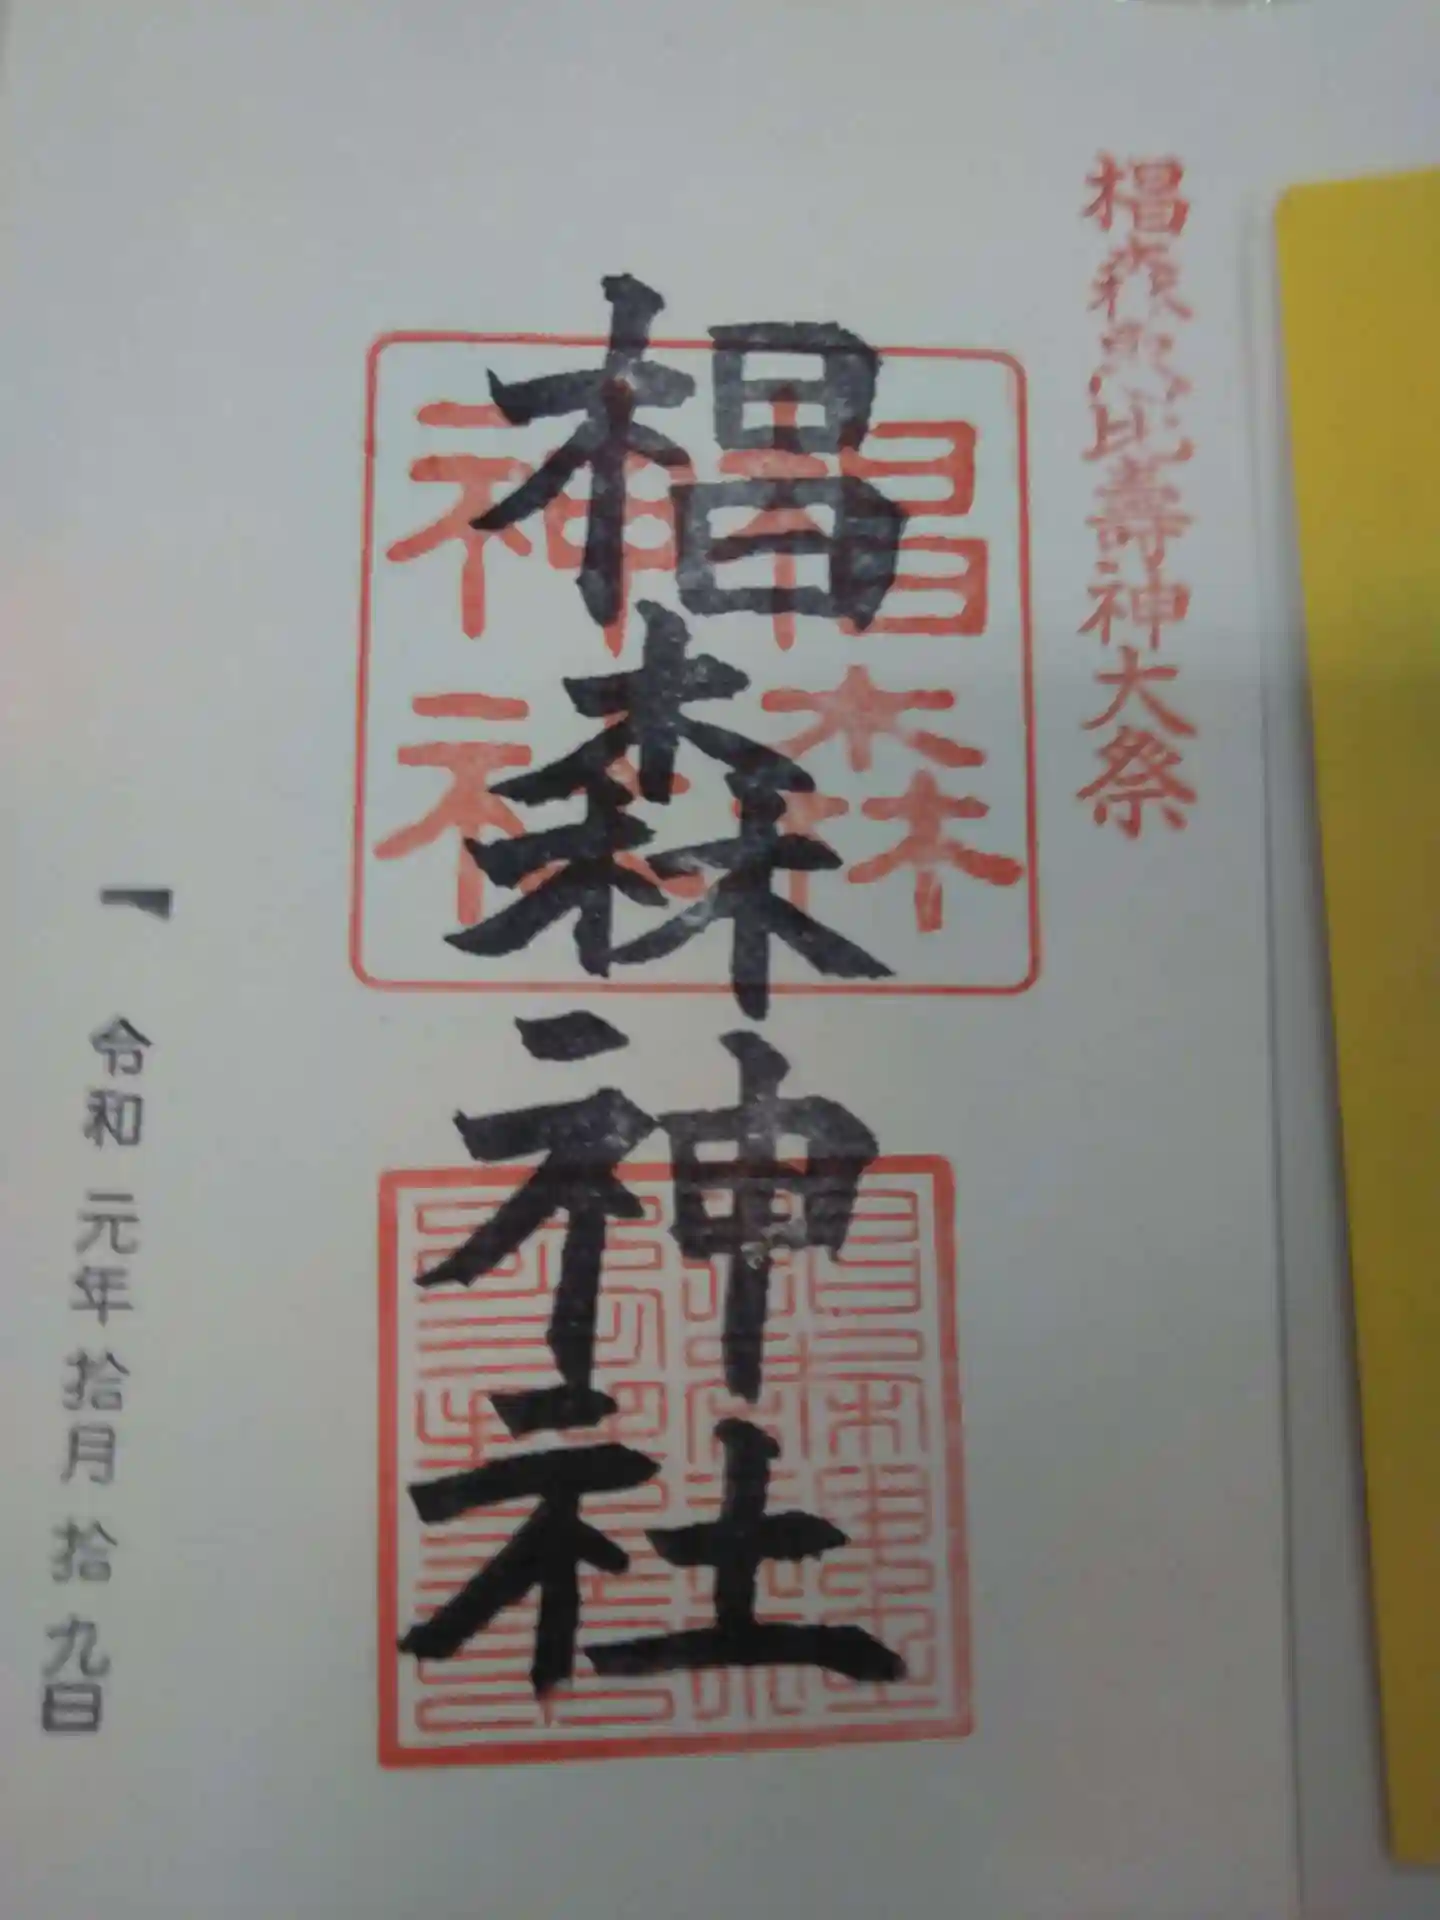 椙森恵比壽神大祭
椙森神社
椙森
神社
令和元年拾月拾九日